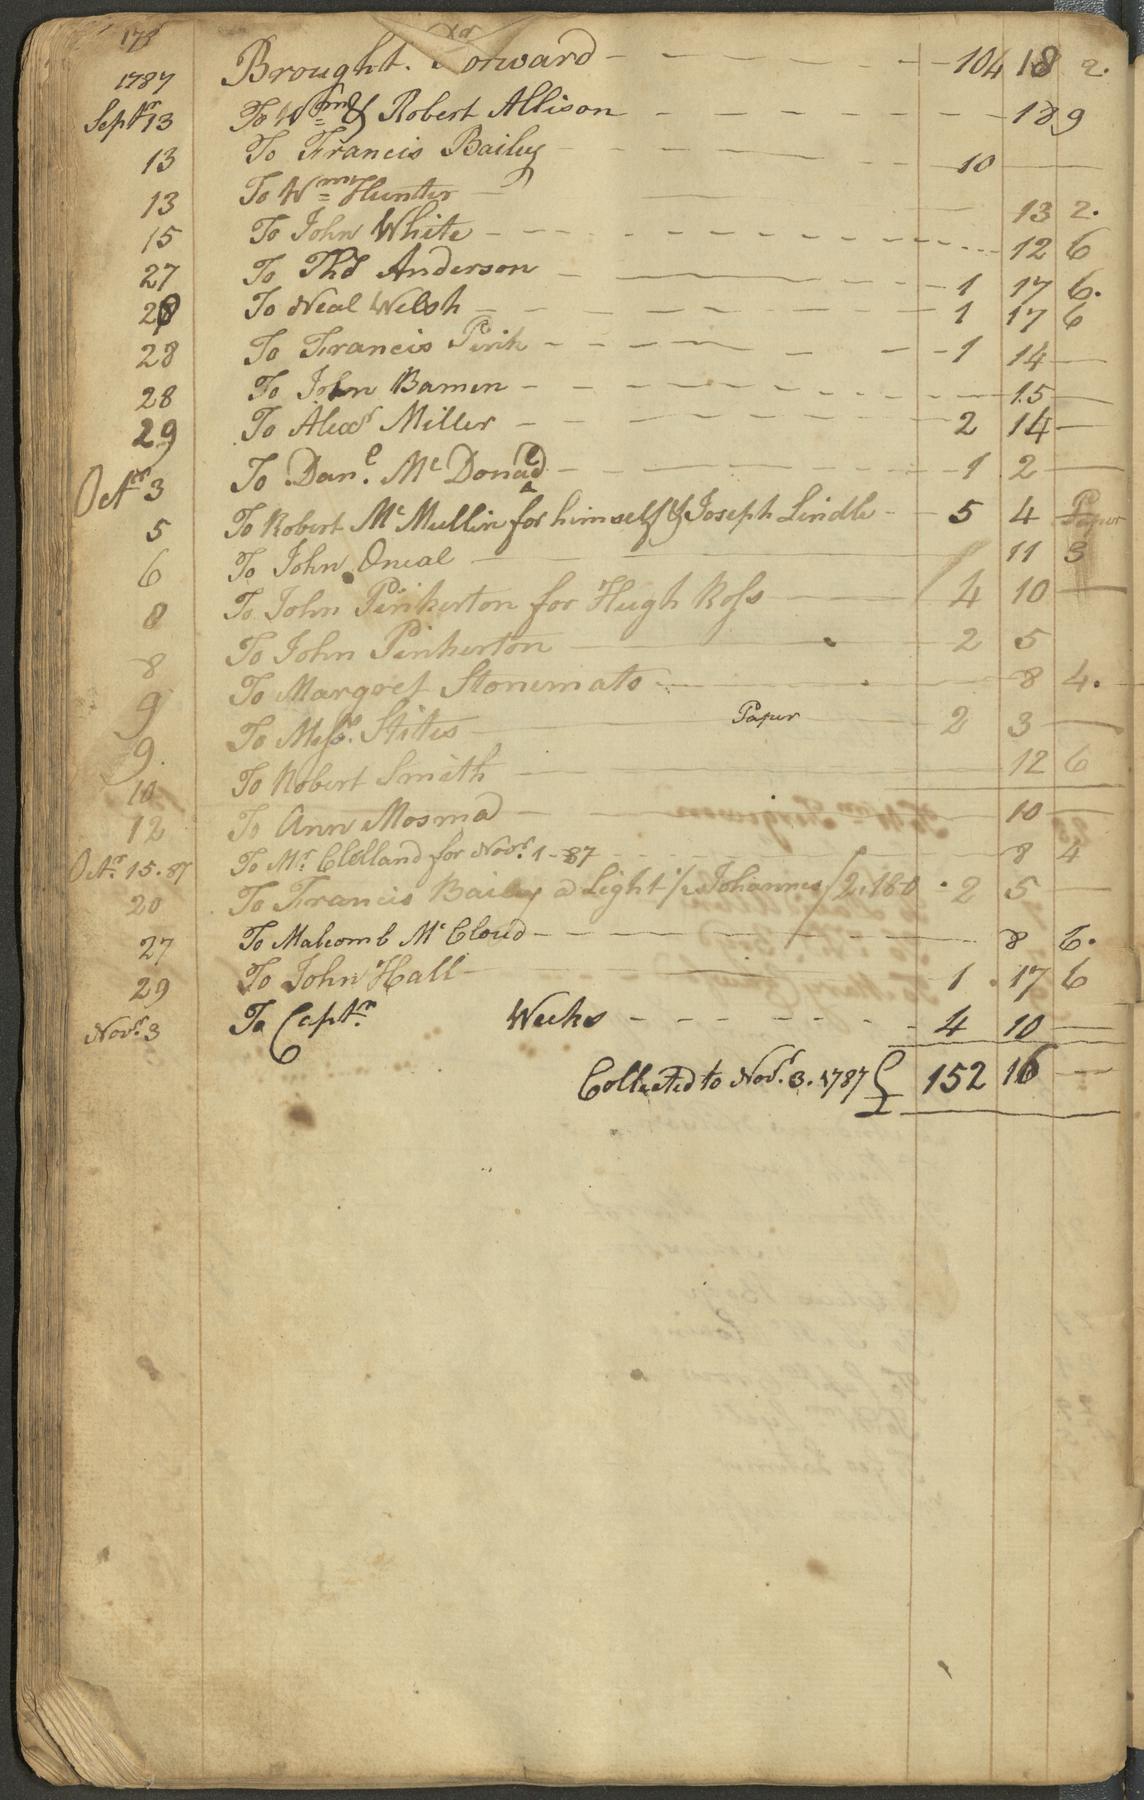 178
1787 Brought. Forward 104 18 2.
Septr 13 To Wm & Robert Allison 18 9
13 To Francis Bailey 10
13 To Wm Hunter 13 2.
15 To John White 12 6
27 To Thos Anderson 1 17 6.
28 To Neal Welsh 1 17 6
28 To Francis 1 14
28 To John Bamen 15
29 To Alexr Miller 2 14
Octr 3 To Danl. Mc Donald 1 2
5 To Robert Mc Mullin for himself & Joseph Lindle 5 4 Paper
6 To John Oneal 11 3
8 To John Pinkerton for Hugh Ross 4 10
8 To John Pinkerton 2 5
9 To Margret Stonemats 8 4.
9. To Messrs. Stites Paper 2 3
10 To Robert Smith 12 6
12 To Ann Mosmad 10
Octr. 15. 87 To Mr. Clelland for Novr. 1 - 87 8 4
20 To Francis Bailey a Light 1/2 Johannes / 2.18.0 2 5
27 To Malcomb Mc Cloud 8 6.
29 To John Hall 1 17 6
Novr. 3 To Captn. Weeks 4 10
Collected to Novr. 3. 1787 £ 152 16